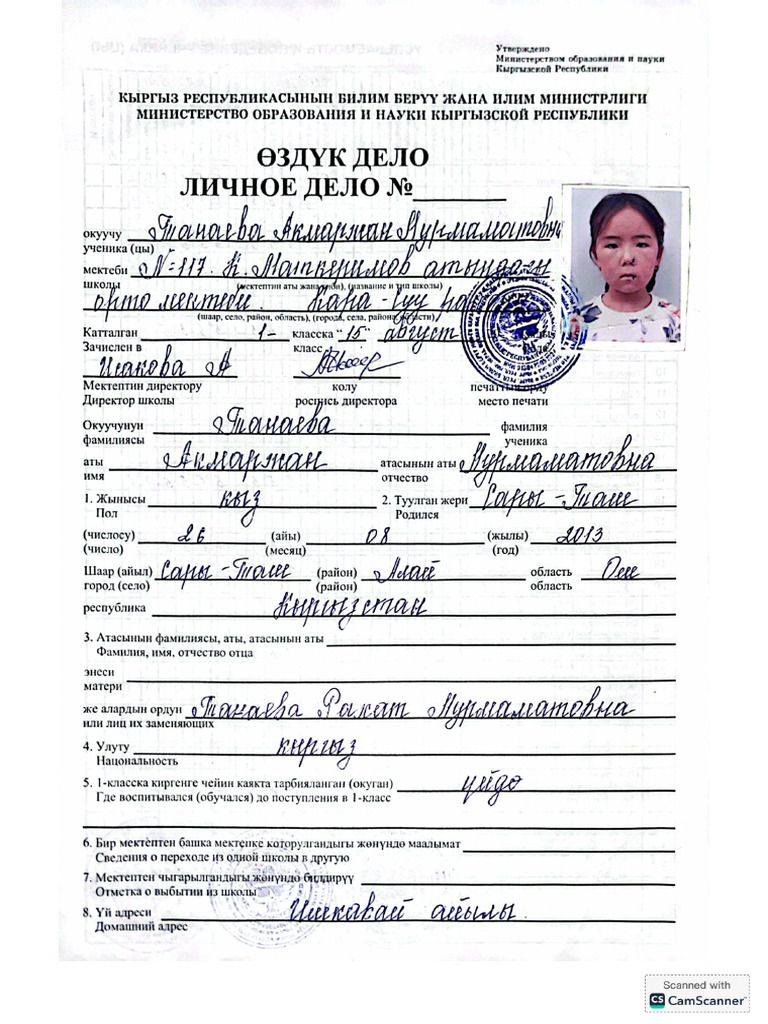 Утверждено
Министерством образования и науки
Кыргызской Республики
КЫРГЫЗ РЕСПУБЛИКАСЫНЫН БИЛИМ БЕРҮҮ ЖАНА ИЛИМ МИНИСТРЛИГИ
МИНИСТЕРСТВО ОБРАЗОВАНИЯ И НАУКИ КЫРГЫЗСКОЙ РЕСПУБЛИКИ
ӨЗДҮК ДЕЛО
ЛИЧНОЕ ДЕЛО №
окуучу Танаева Акмаржан Нурмаматовна
ученика (цы)
мектеби №117. К. Маткеримов атындагы
школы (мектептин аты жана түрү), (название и тип школы)
орто мектеби. Кара-Суу
(шаар, село, район, область), (города, села, района, области)
Катталган 1- класска "15" август
Зачислен в класс
Исакова А
Мектептин директору колу печаттын орду
Директор школы роспись директора место печати
Окуучунун Танаева фамилия
фамилиясы ученика
аты Акмаржан атасынын аты Нурмаматовна
имя отчество
1. Жынысы кыз 2. Туулган жери Сары-Таш
Пол Родился
(числосу) 26 (айы) 08 (жылы) 2013
(число) (месяц) (год)
Шаар (айыл) Сары-Таш (район) Алай область Ош
город (село) (район) область
республика Кыргызстан
3. Атасынын фамилиясы, аты, атасынын аты
Фамилия, имя, отчество отца
энеси
матери
же алардын ордун Танаева Ракат Нурмаматовна
или лиц их заменяющих
4. Улуту кыргыз
Национальность
5. 1-класска киргенге чейин каякта тарбияланган (окуган) үйдө
Где воспитывался (обучался) до поступления в 1-класс
6. Бир мектептен башка мектепке которулгандыгы жөнүндө маалымат
Сведения о переходе из одной школы в другую
7. Мектептен чыгарылгандыгы жөнүндө билдирүү
Отметка о выбытии из школы
8. Үй адреси айылы.
Домашний адрес
Scanned with
CS CamScanner